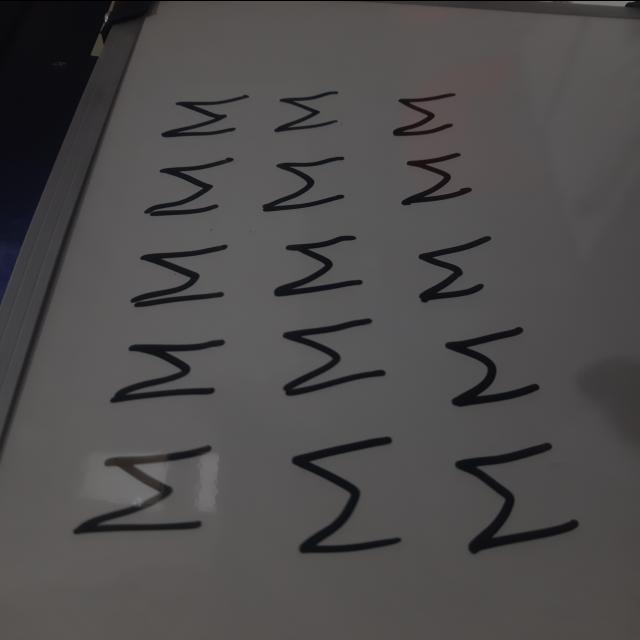 Σ Σ Σ
Σ Σ Σ
Σ Σ Σ
Σ Σ Σ
Σ Σ Σ